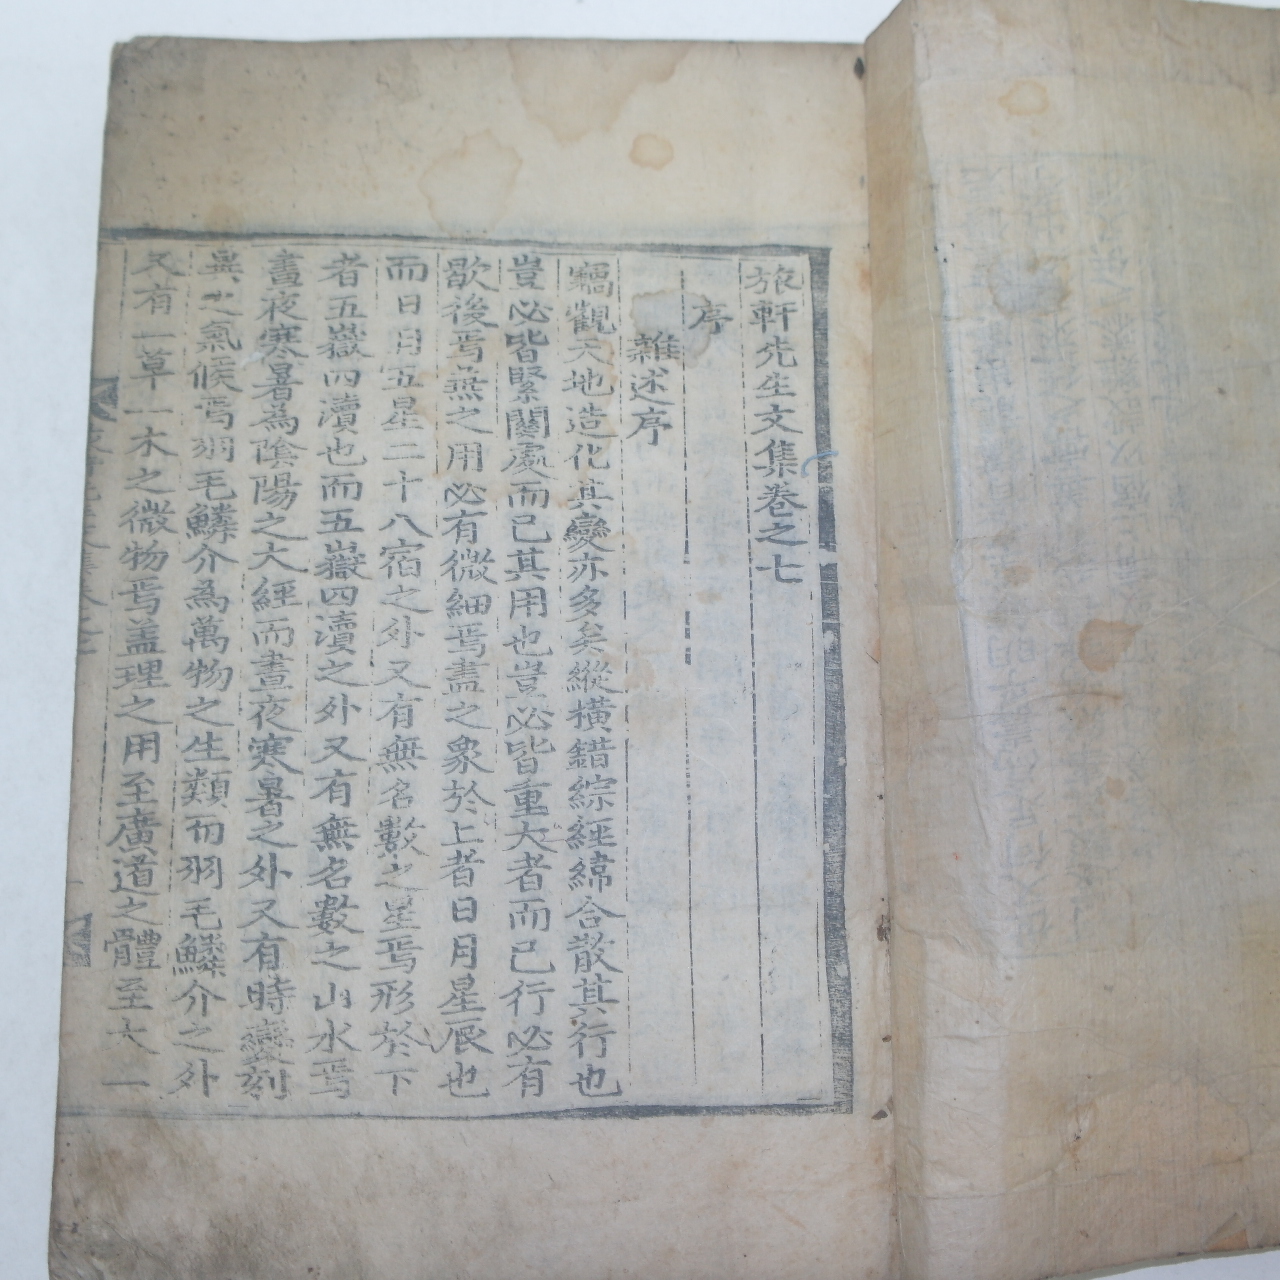 旅軒先生文集卷之七
序
雜述序
竊觀天地造化其變亦多矣縱橫錯綜經緯合散其行也
豈必皆緊關處而已其用也豈必皆重大者而已行必有
歇後焉無之用必有微細焉盡之象於上者日月星辰也
而日月五星二十八宿之外又有無名數之星焉形於下
者五嶽四瀆也而五嶽四瀆之外又有無名數之山水焉
晝夜寒暑為陰陽之大經而晝夜寒暑之外又有時變刻
異之氣候焉羽毛鱗介為萬物之生類而羽毛鱗介之外
又有一草一木之微物焉盖理之用至廣道之體至大一